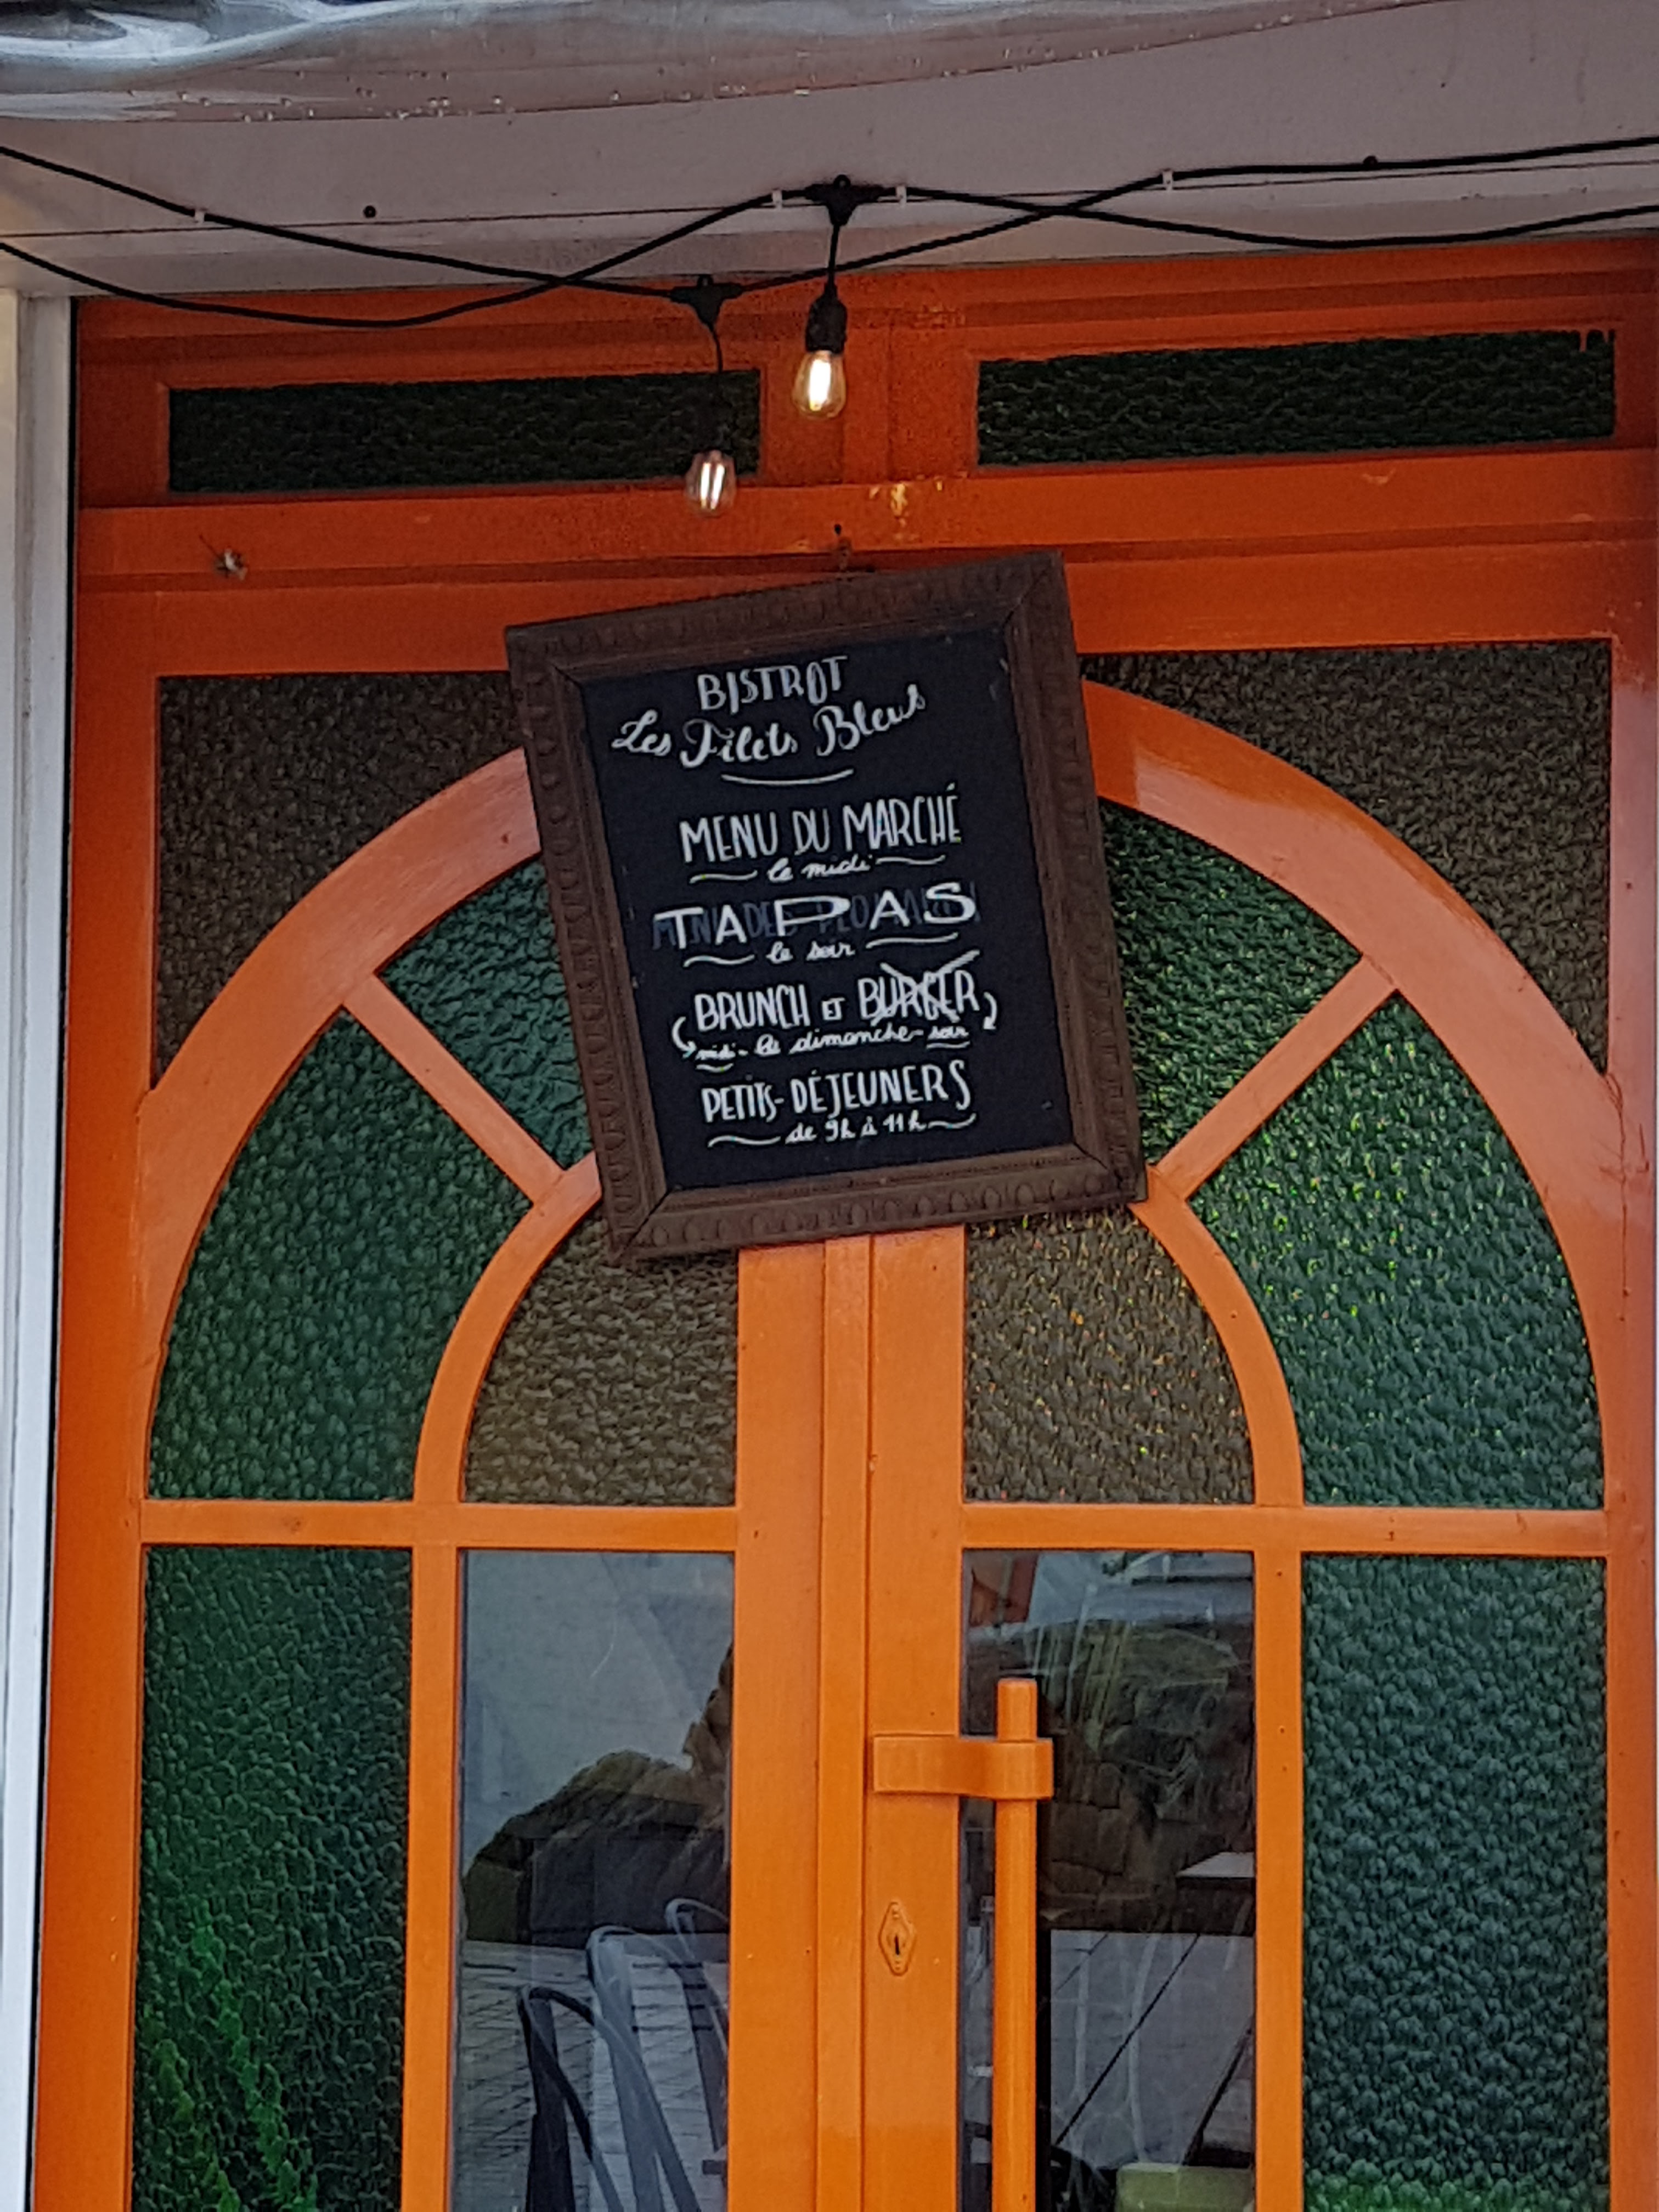 BISTROT
Les Filets Bleus
MENU DU MARCHÉ
le midi
TAPAS
le soir
BRUNCH ET BURGER
midi - le dimanche - soir
PETITS-DÉJEUNERS
de 9h à 11h